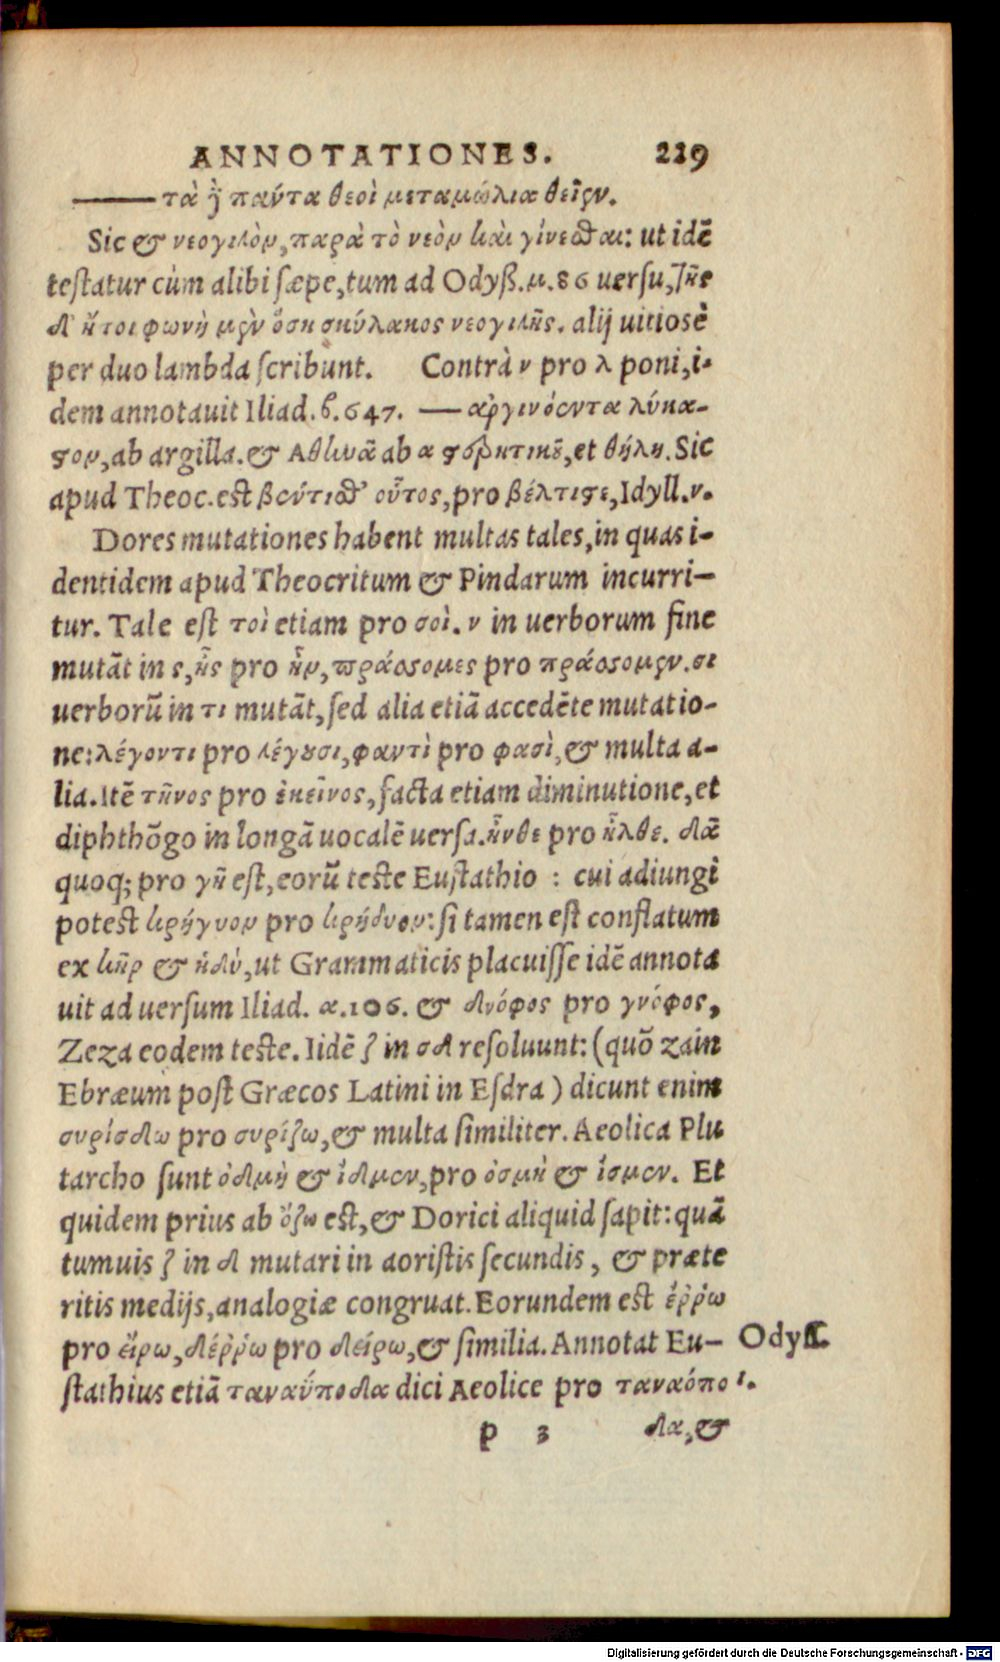 ANNOTATIONES. 229
—— τὰ δὲ πάντα θεοὶ μεταμώλια θεῖεν.
Sic & νεογιλὸν, παρὰ τὸ νεὸν καὶ γίνεσθαι: ut idē
testatur cùm alibi sæpe, tum ad Odyß. μ. 86 uersu, τῆς
δ' ἤτοι φωνὴ μὲν ὅση σκύλακος νεογιλῆς. alij uitiosè
per duo lambda scribunt. Contrà ν pro λ poni, i-
dem annotauit Iliad. β. 647. — ἀργινόεντα λύκα-
στον, ab argilla. & Αθηνᾶ ab α στερητικῷ, et θήλη. Sic
apud Theoc. est βέντισθ' οὗτος, pro βέλτιστε, Idyll. ν.
Dores mutationes habent multas tales, in quas i-
dentidem apud Theocritum & Pindarum incurri-
tur. Tale est τοὶ etiam pro σοὶ. ν in uerborum fine
mutāt in ς, ἦς pro ἦν, πράσσομες pro πράσσομεν. σι
uerborū in τι mutāt, sed alia etiā accedēte mutatio-
ne: λέγοντι pro λέγουσι, φαντὶ pro φασὶ, & multa a-
lia. Itē τῆνος pro ἐκεῖνος, facta etiam diminutione, et
diphthōgo in longā uocalē uersa. ἦνθε pro ἦλθε. δᾶ
quoq; pro γῆ est, eorū teste Eustathio : cui adiungi
potest κρήγυον pro κρήδυον: si tamen est conflatum
ex κῆρ & ἡδὺ, ut Grammaticis placuisse idē annota
uit ad uersum Iliad. α. 106. & δνόφος pro γνόφος,
Zeza eodem teste. Iidē ζ in σδ resoluunt: (quō zain
Ebræum post Græcos Latini in Esdra ) dicunt enim
συρίσδω pro συρίζω, & multa similiter. Aeolica Plu
tarcho sunt ὀδμὴ & ἴδμεν, pro ὀσμὴ & ἴσμεν. Et
quidem prius ab ὄζω est, & Dorici aliquid sapit: quā
tumuis ζ in δ mutari in aoristis secundis, & præte
ritis medijs, analogiæ congruat. Eorundem est ἔῤῥω
pro εἴρω, δέῤῥω pro δείρω, & similia. Annotat Eu- Odyss.
stathius etiā ταναΰποδα dici Aeolice pro ταναόπο ι.
p 3 δα, &
Digitalisierung gefördert durch die Deutsche Forschungsgemeinschaft - DFG